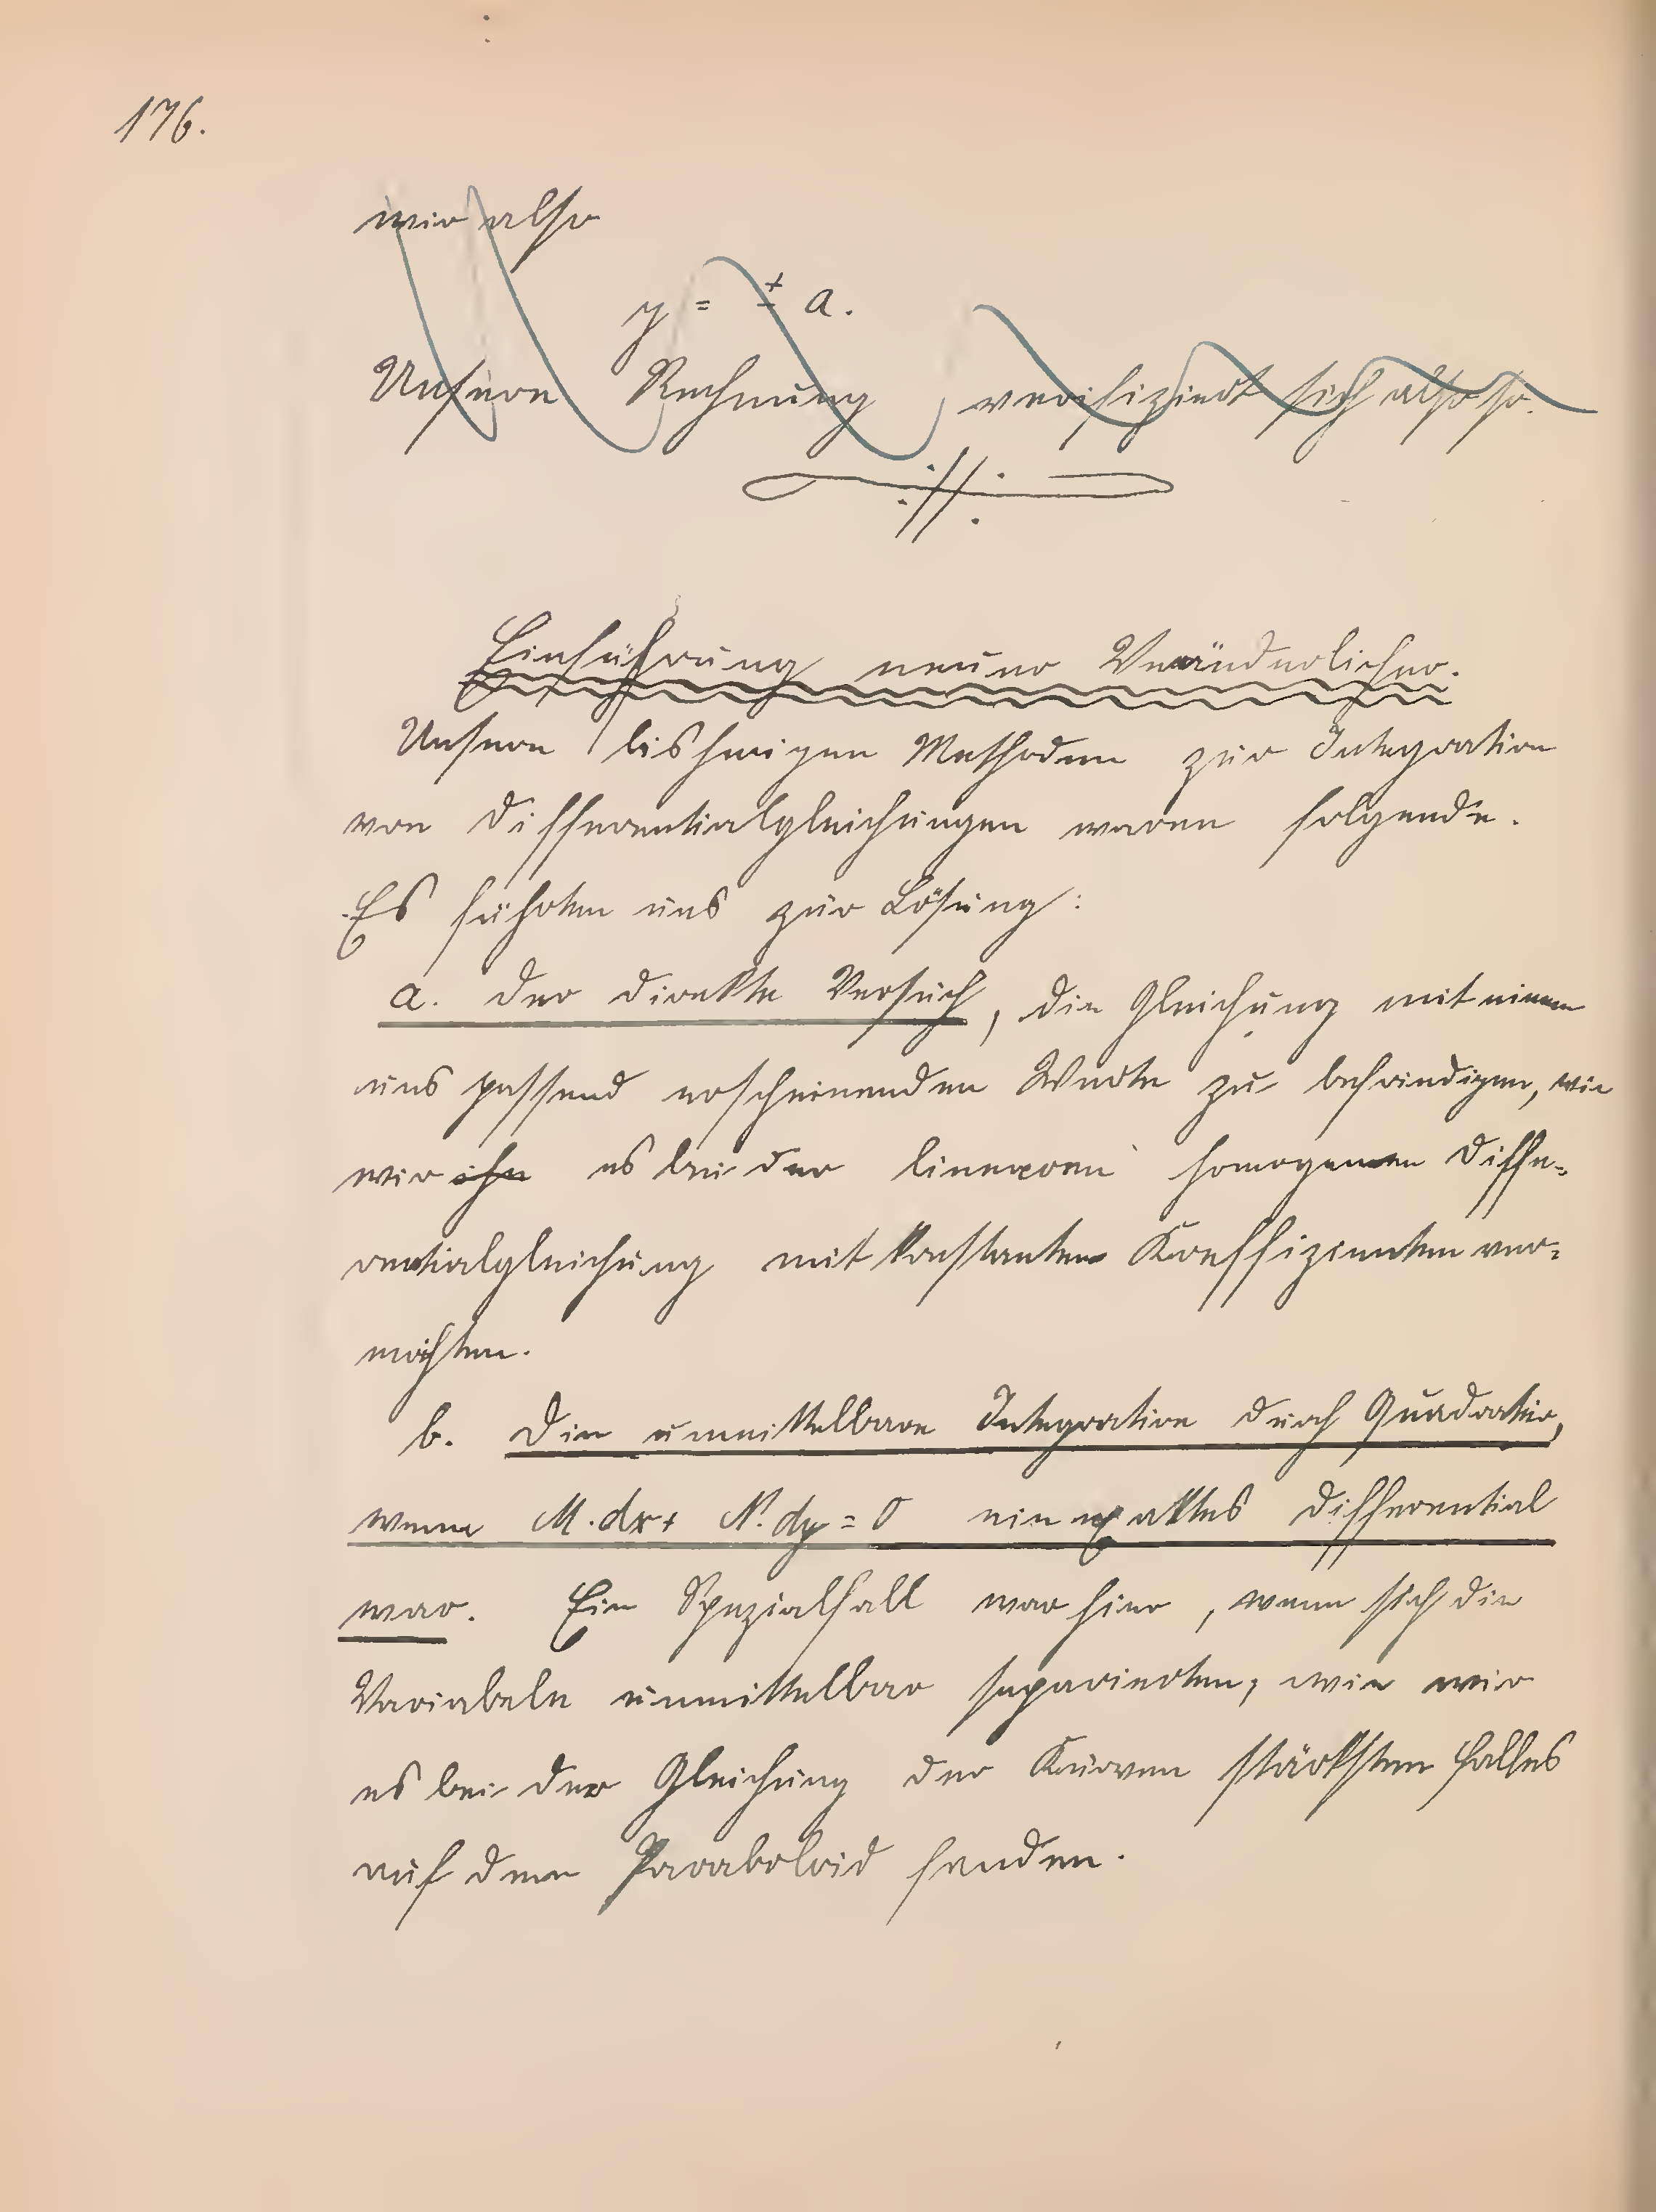 176.
wir also
y = ± a.
Unsere Rechnung verifiziert sich also so.
Einführung neuer Veränderlicher.
Unsere bisherigen Methoden zur Integration
von Differentialgleichungen waren folgende.
Es führten uns zur Lösung:
a. der direkte Versuch, die Gleichung mit einem
uns passend erscheinenden Werte zu befriedigen, wie
wir ihn es bei der linearen homogenen Diffe-
rentialgleichung mit konstanten Koeffizienten ver-
mochten.
b. Die unmittelbare Integration durch Quadratur,
wenn M.dx + N.dy = 0 ein exaktes Differential
war. Ein Spezialfall war hier, wenn sich die
Variabeln unmittelbar separierten, wie wir
es bei der Gleichung der Kurven stärksten Falles
auf dem Paraboloid fanden.